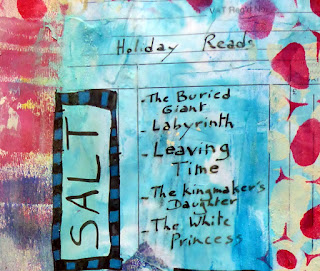 VAT Reg'd No
Holiday Reads
SALT
- The Buried
Giant
- Labyrinth
- Leaving
Time
- The Kingmaker's
Daughter
- The White
Princess